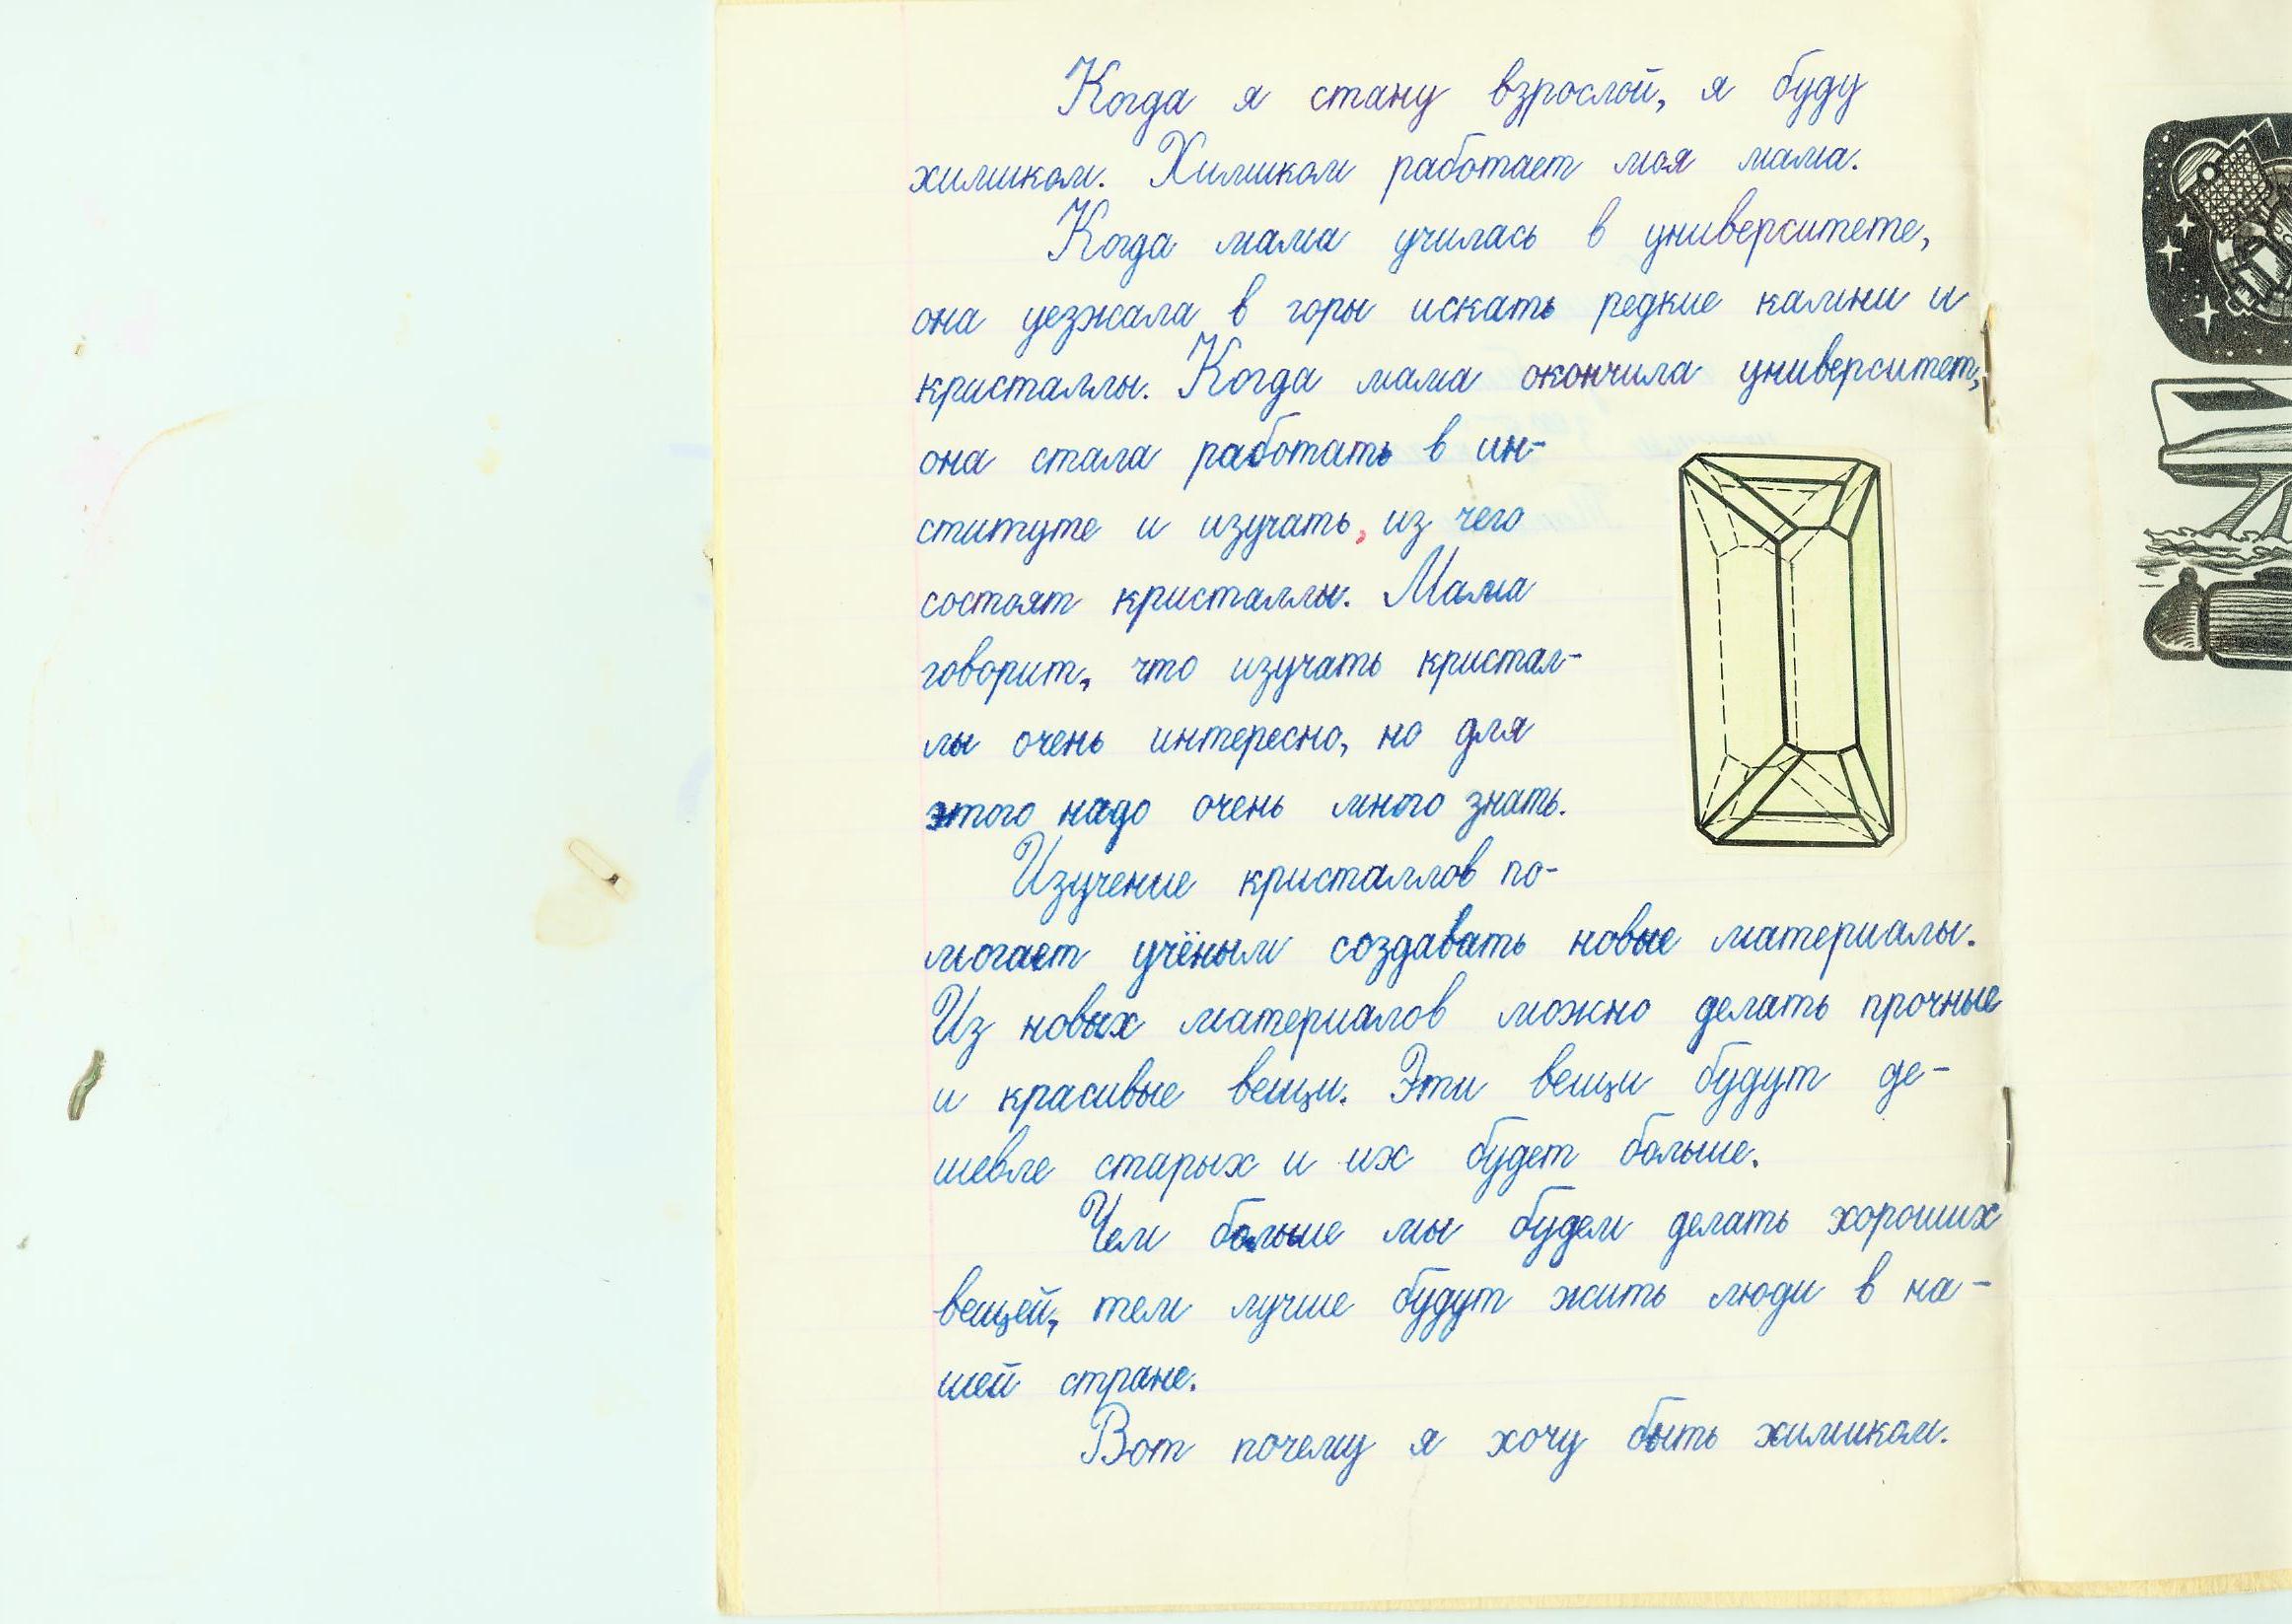 Когда я стану взрослой, я буду
химиком. Химиком работает моя мама.
Когда мама училась в университете,
она уезжала в горы искать редкие камни и
кристаллы. Когда мама окончила университет,
она стала работать в ин-
ституте и изучать, из чего
состоят кристаллы. Мама
говорит, что изучать кристал-
лы очень интересно, но для
этого надо очень много знать.
Изучение кристаллов по-
могает учёным создавать новые материалы.
Из новых материалов можно делать прочные
и красивые вещи. Эти вещи будут де-
шевле старых и их будет больше.
Чем больше мы будем делать хороших
вещей, тем лучше будут жить люди в на-
шей стране.
Вот почему я хочу быть химиком.